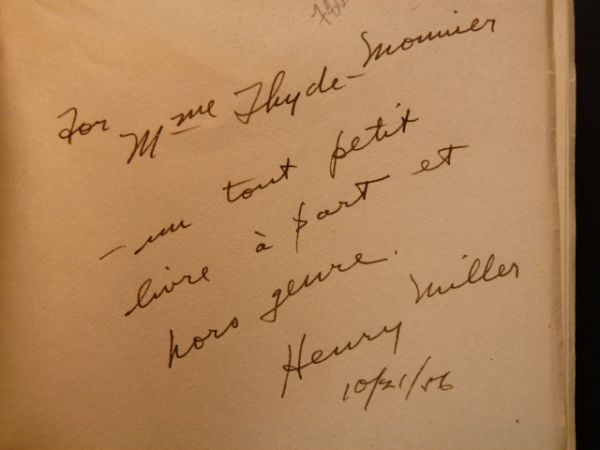 For Mme Thyde-Monnier
— un tout petit
livre à part et
hors genre.
Henry Miller
10/21/56